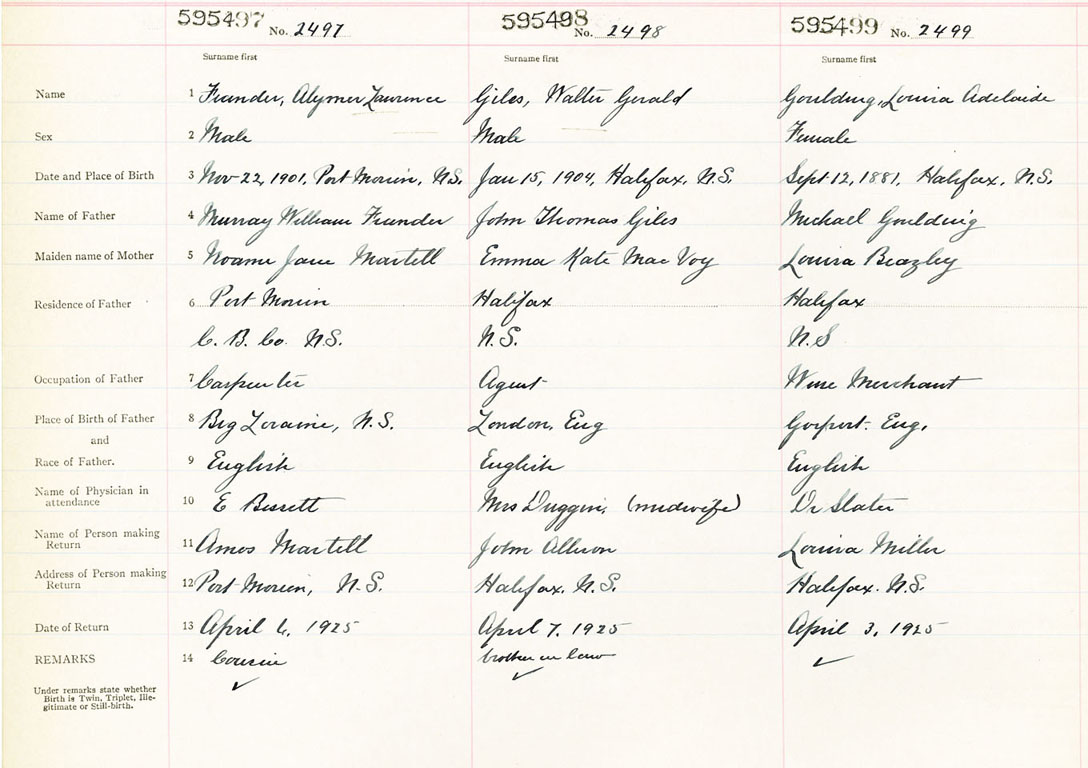 595497 No. 2497 595498 No. 2498 595499 No. 2499
Surname first Surname first Surname first
Name 1 Frunder, Alymer Lawrence Giles, Walter Gerald Goulding, Louisa Adelaide
Sex 2 Male Male Female
Date and Place of Birth 3 Nov 22, 1901, Port Morien, N.S. Jan 15, 1904, Halifax, N.S. Sept 12, 1881, Halifax, N.S.
Name of Father 4 Murray William Frunder John Thomas Giles Michael Goulding
Maiden name of Mother 5 Noami Jane Martell Emma Kate MacVoy Louisa Beazley
Residence of Father 6 Port Morien Halifax Halifax
C. B. Co. N.S. N.S. N.S
Occupation of Father 7 Carpenter Agent Wine Merchant
Place of Birth of Father 8 Big Loraine, N.S. London, Eng Gosport. Eng.
and
Race of Father. 9 English English English
Name of Physician in
attendance 10 E Bissett Mrs Duggin, (midwife) Dr Slater
Name of Person making
Return 11 Amos Martell John Allison Louisa Miller
Address of Person making
Return 12 Port Morien, N.S. Halifax, N.S. Halifax. N.S.
Date of Return 13 April 6, 1925 April 7, 1925 April 3, 1925
REMARKS 14 Cousin brother in law ✓
✓ ✓
Under remarks state whether
Birth is Twin, Triplet, Ille-
gitimate or Still-birth.